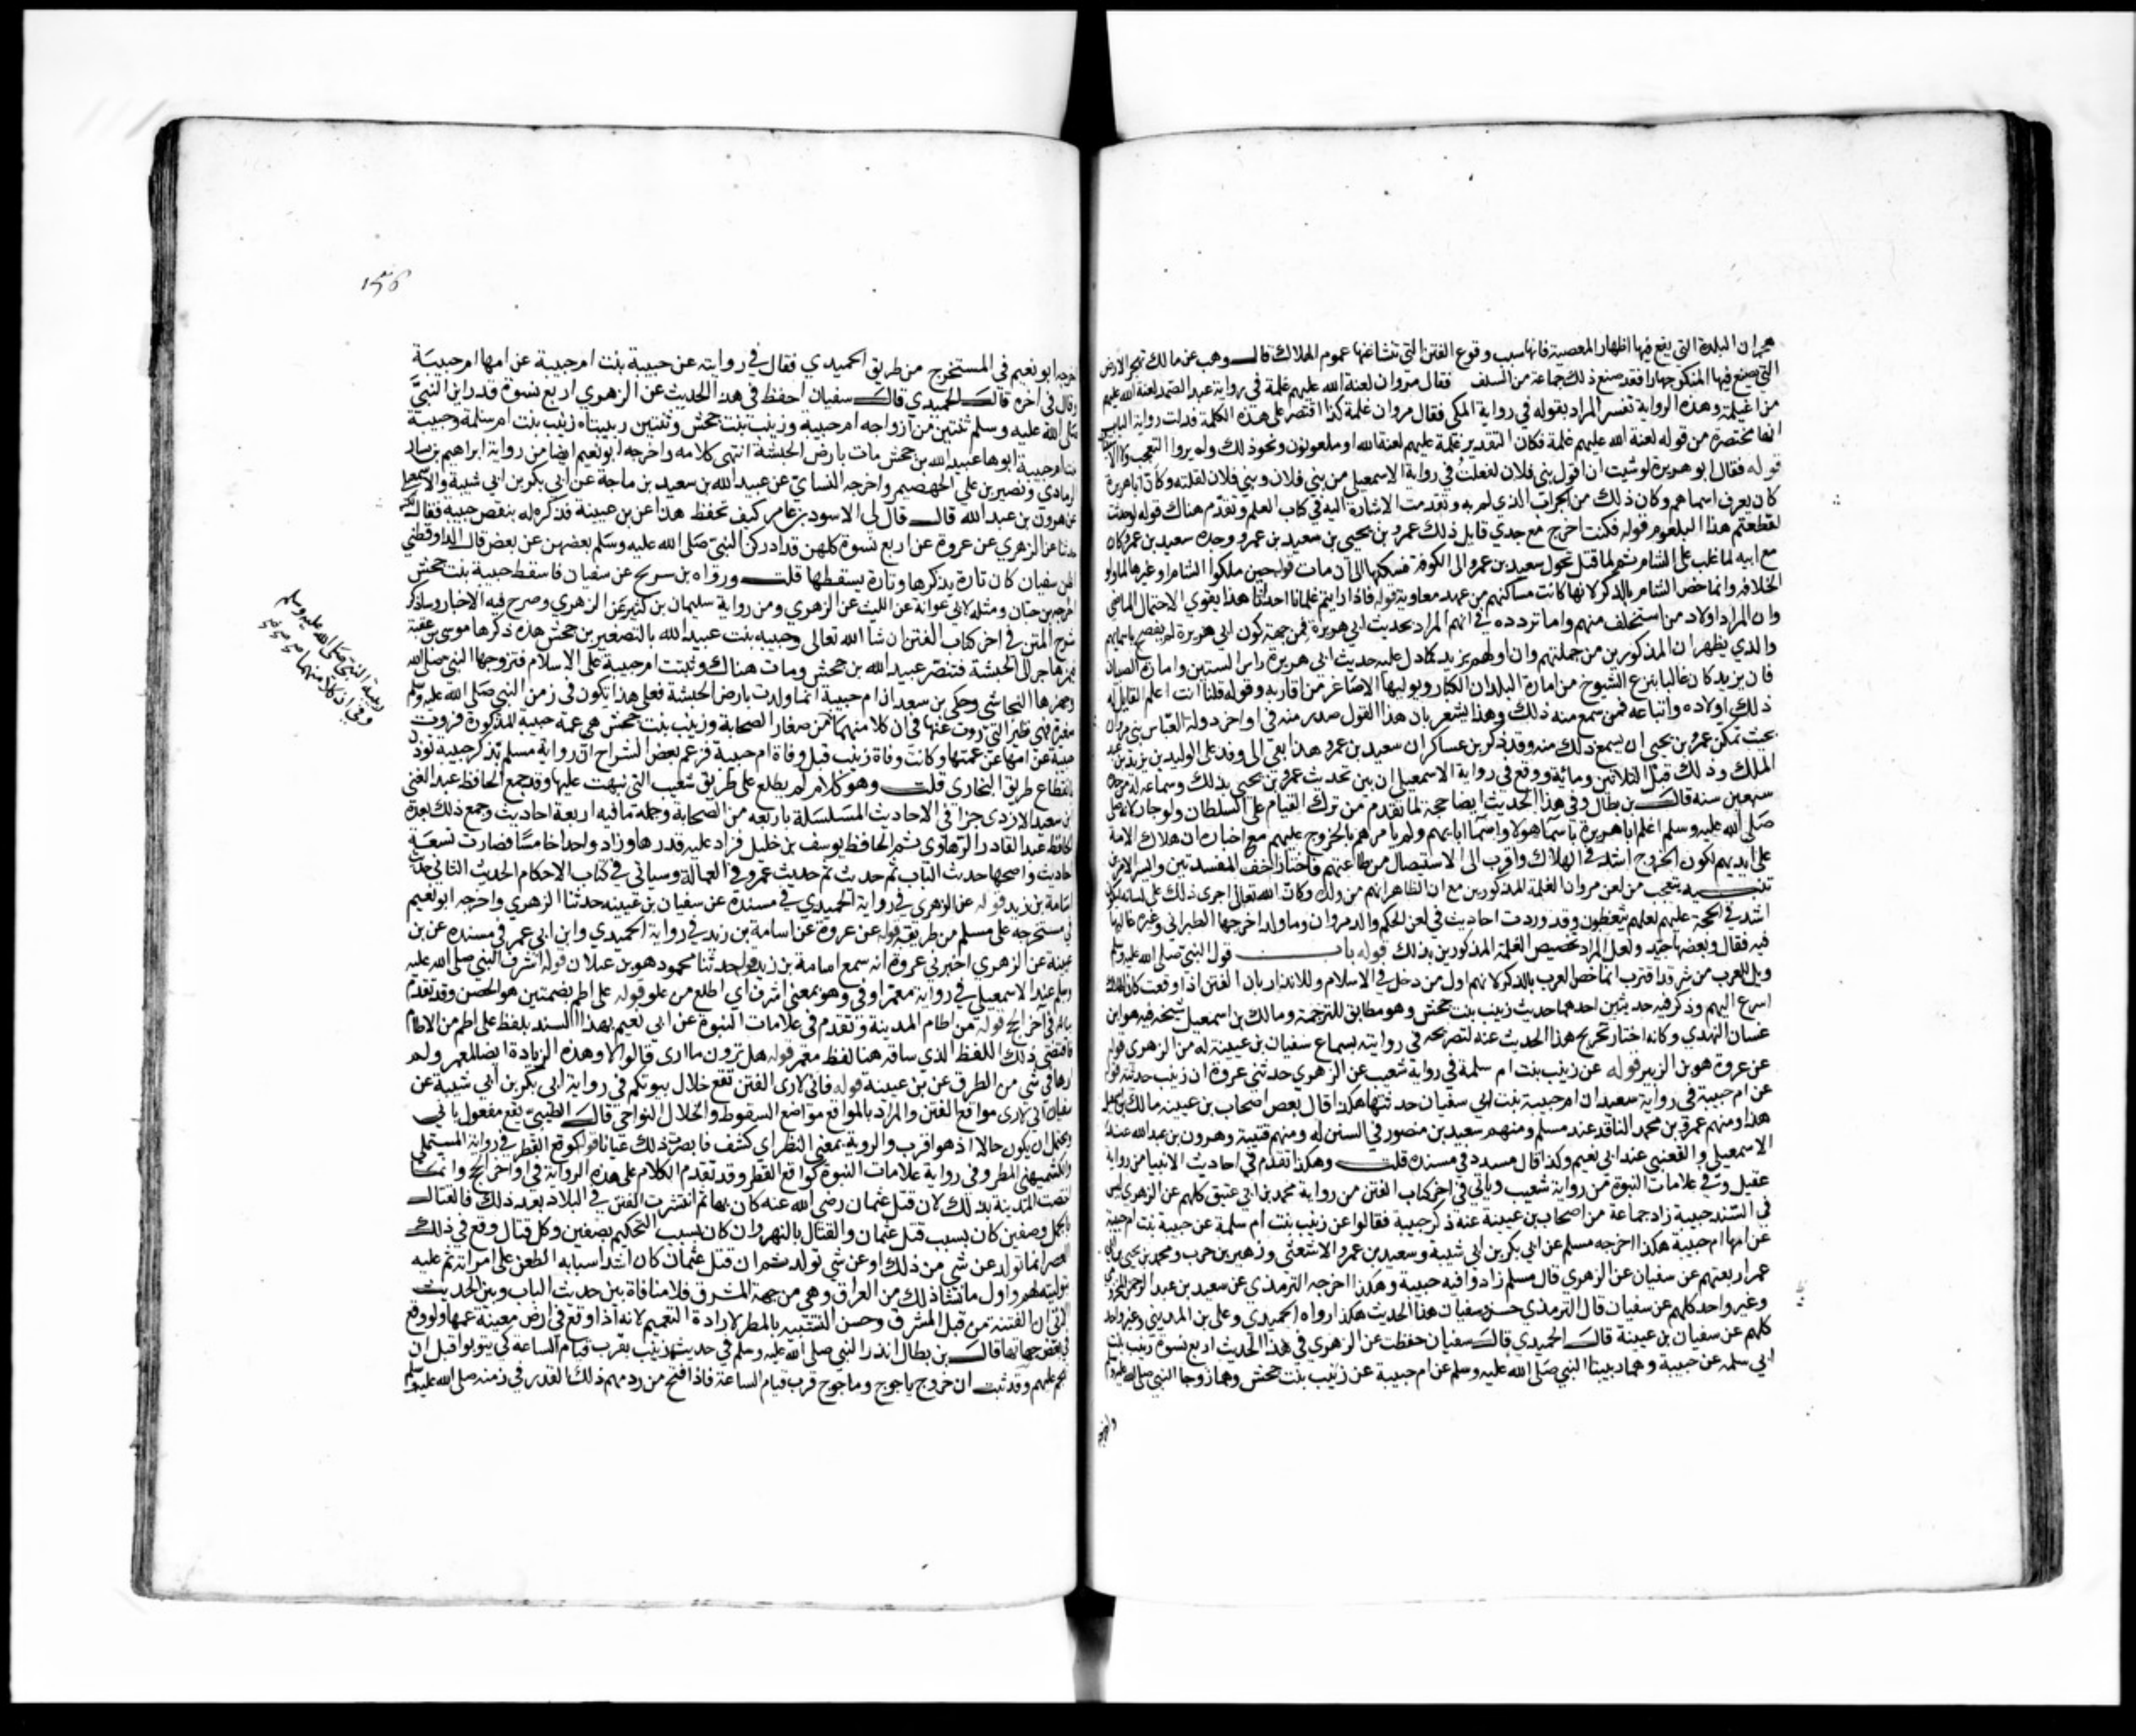 هجران البلدة التي يقع فيها اظهار المعصية فانها سبب وقوع الفتن التي تنشا عنها عموم الهلاك قال وهب عن مالك تهجر الارض
التي يصنع فيها المنكر جهارا وقد صنع ذلك جماعة من السلف فقال مروان لعنة الله عليهم غلمة في رواية عبد الصمد لعنة الله عليهم
من اغيلمة وهذه الرواية تفسر المراد بقوله في رواية المكي فقال مروان غلمة كذا اقتصر على هذه الكلمة فدلت رواية الباب
انها مختصرة من قوله لعنة الله عليهم غلمة فكان التقدير غلمة عليهم لعنة الله او ملعونون ونحو ذلك ولم يرد التعجب ولا
قوله فقال ابو هريرة لو شيت ان اقول بني فلان وبني فلان لفعلت في رواية الاسمعيلي من بني فلان وبني فلان لقلت وكان ابا هريرة
كان يعرف اسماهم وكان ذلك من الجراب الذي لم يبه وتقدمت الاشارة اليه في كتاب العلم وتقدم هناك قوله لو حدثت
لقطعتم هذا البلعوم قوله فكنت اخرج مع جدي قايل ذلك عمرو بن يحيى بن سعيد بن عمرو وجده سعيد بن عمرو وكان
مع ابيه لما غلب على الشام ثم لما قتل تحول سعيد بن عمرو الى الكوفة فسكنها الى ان مات قوله حين ملكوا الشام اي وغيرها لما ولوا
الخلافة وانما خص الشام بالذكر لانها كانت مساكنهم من عهد معاوية قوله فاذا راهم غلمانا احداثا هذا يقوي الاحتمال الماضي
وان المراد اولاد من استخلف منهم واما تردده في ايهم المراد بحديث ابي هريرة فمن جهة كون ابي هريرة لم يفصح باسمايهم
والذي يظهر ان المذكورين من جملتهم وان اولهم يزيد كما دل عليه حديث ابي هريرة راس الستين وامارة الصبيان
فان يزيد كان غالبا ينزع الشيوخ من امارة البلدان الكبار ويوليها الاصاغر من اقاربه وقوله قلنا انت اعلم القايل له
ذلك اولاده واتباعه ممن سمع منه ذلك وهذا يشعر بان هذا القول صدر منه في اواخر دولة بني مروان
بحيث تمكن عمرو بن يحيى ان يسمع ذلك منه وقد ذكر بن عساكر ان سعيد بن عمرو هذا بقي الى وفد على الوليد بن يزيد بن عبد
الملك وذلك قبل الثلاثين وماية ووقع في رواية الاسمعيلي ان بين تحديث عمرو بن يحيى بذلك وسماعه له من جده
سبعين سنة قال بن بطال وفي هذا الحديث ايضا حجة لما تقدم من ترك القيام على السلطان ولو جار لانه
صلى الله عليه وسلم اعلم ابا هريرة باسما هولا واسما ابايهم ولم يامرهم بالخروج عليهم مع اخباره ان هلاك الامة
على ايديهم لكون الخروج اشد في الهلاك واقرب الى الاستيصال من طاعتهم فاختار اخف المفسدتين وايسر الامرين
تنبيه يتعجب من لعن مروان الغلمة المذكورين مع ان الظاهر انهم من ولده وكان الله تعالى اجرى ذلك على لسانه ليكون
اشد في الحجة عليهم لعلهم يتعظون وقد وردت احاديث في لعن الحكم والد مروان وما ولد اخرجها الطبراني وغيره غالبها
فيه مقال وبعضها جيد ولعل المراد تخصيص الغلمة المذكورين بذلك قوله باب قول النبي صلى الله عليه وسلم
ويل للعرب من شر قد اقترب انما خص العرب بالذكر لانهم اول من دخل في الاسلام وللانذار بان الفتن اذا وقعت كان الهلاك
اسرع اليهم وذكر فيه حديثين احدهما حديث زينب بنت جحش وهو مطابق للترجمة ومالك بن اسمعيل شيخه فيه هو ابو
غسان النهدي وكانه اختار تخريج هذا الحديث عنه لتصريحه في روايته بسماع سفيان بن عيينة له من الزهري قوله
عن عروة هو بن الزبير قوله عن زينب بنت ام سلمة في رواية شعيب عن الزهري حدثني عروة ان زينب حدثته قوله
عن ام حبيبة في رواية سعيد ان ام حبيبة بنت ابي سفيان حدثتها هكذا قال بعض اصحاب بن عيينة مالك بن اسمعيل
هذا ومنهم عمرو بن محمد الناقد عند مسلم ومنهم سعيد بن منصور في السنن له ومنهم قتيبة وهرون بن عبد الله عند
الاسمعيلي والقعنبي عند ابي نعيم وكذا قال مسدد في مسنده قلت وهكذا تقدم في احاديث الانبيا من رواية
عقيل وفي علامات النبوة من رواية شعيب وياتي في اخر كتاب الفتن من رواية محمد بن ابي عتيق كلهم عن الزهري ليس
في السند حبيبة زاد جماعة من اصحاب بن عيينة عنه ذكر حبيبة فقالوا عن زينب بنت ام سلمة عن حبيبة بنت ام حبيبة
عن امها ام حبيبة هكذا اخرجه مسلم عن ابي بكر بن ابي شيبة وسعيد بن عمرو الاشعثي وزهير بن حرب ومحمد بن يحيى بن ابي
عمر اربعتهم عن سفيان عن الزهري قال مسلم زادوا فيه حبيبة وهكذا اخرجه الترمذي عن سعيد بن عبد الرحمن المخزومي
وغير واحد كلهم عن سفيان قال الترمذي جود سفيان هذا الحديث هكذا رواه الحميدي وعلي بن المديني وغير واحد
كلهم عن سفيان بن عيينة قال الحميدي قال سفيان حفظت عن الزهري في هذا الحديث اربع نسوة زينب بنت
ابي سلمه عن حبيبة وهما ربيبتا النبي صلى الله عليه وسلم عن ام حبيبة عن زينب بنت جحش وهما زوجا النبي صلى الله عليه وسلم
واخرجه
١٥٦
اخرجه ابو نعيم في المستخرج من طريق الحميدي فقال في روايته عن حبيبة بنت ام حبيبة عن امها ام حبيبة
وقال في اخره قال الحميدي قال سفيان احفظ في هذا الحديث عن الزهري اربع نسوة قد راين النبي
صلى الله عليه وسلم ثنتين من ازواجه ام حبيبة وزينب بنت جحش وثنتين ربيبتاه زينب بنت ام سلمة وحبيبة
بنت ام حبيبة ابوها عبيد الله بن جحش مات بارض الحبشة انتهى كلامه واخرجه ابو نعيم ايضا من رواية ابراهيم بن بشار
الرمادي ونصر بن علي الجهضمي واخرجه النساي عن عبيد الله بن سعيد بن ماجة عن ابي بكر بن ابي شيبة والاسمعيلي
عن هرون بن عبد الله قال قال لي الاسود بن عامر كيف تحفظ هذا عن بن عيينة فذكره له بنقص حبيبة فقال لكنه
حدثنا عن الزهري عن عروة عن اربع نسوة كلهن قد ادركن النبي صلى الله عليه وسلم بعضهن عن بعض قال الدارقطني
اظن سفيان كان تارة يذكرها وتارة يسقطها قلت ورواه بن سريج عن سفيان فاسقط حبيبة بنت جحش
اخرجه بن حبان ومثله لابي عوانة عن الليث عن الزهري ومن رواية سليمان بن كثير عن الزهري وصرح فيه الاخبار وساذكر
شرح المتن في اخر كتاب الفتن ان شا الله تعالى وحبيبه بنت عبيد الله بالتصغير بن جحش هذه ذكرها موسى بن عقبة
فيمن هاجر الى الحبشة فتنصر عبيد الله بن جحش ومات هناك وثبتت ام حبيبة على الاسلام فتزوجها النبي صلى الله
وجهزها النجاشي وحكى بن سعد ان ام حبيبة انما ولدت بارض الحبشة فعلى هذا يكون في زمن النبي صلى الله عليه وسلم
صغيرة فهي نظير التي روت عنها في ان كلا منهما من صغار الصحابة وزينب بنت جحش هي عمة حبيبه المذكورة فروت
حبيبة عن امها عن عمتها وكانت وفاة زينب قبل وفاة ام حبيبة فزعم بعض الشراح ان رواية مسلم بذكر حبيبة تؤذن
بانقطاع طريق البخاري قلت وهو كلام لم يطلع على طريق شعيب التي نبهت عليها وقد جمع الحافظ عبد الغني
بن سعيد الازدي جزا في الاحاديث المسلسلة باربعه من الصحابة وجملة ما فيه اربعة احاديث وجمع ذلك بعده
الحافظ عبد القادر الرهاوي ثم الحافظ يوسف بن خليل فزاد عليه قدرها وزاد واحدا خامسا فصارت تسعة
احاديث واصحها حديث الباب ثم حديث عمر في العمالة وسياتي في كتاب الاحكام الحديث الثاني حديث
اسامة بن زيد قوله عن الزهري في رواية الحميدي في مسنده عن سفيان بن عيينه حدثنا الزهري واخرجه ابو نعيم
في مستخرجه على مسلم من طريقه قوله عن عروة عن اسامة بن زيد في رواية الحميدي وابن ابي عمر في مسنده عن بن
عيينة عن الزهري اخبرني عروة انه سمع اسامة بن زيد قوله حدثنا محمود هو بن غيلان قوله اشرف النبي صلى الله عليه
وسلم عند الاسمعيلي في رواية معمر اوفى وهو بمعنى اشرف اي اطلع من علو قوله على اطم بضمتين هو الحصن وقد تقدم
بيانه في اخر الحج قوله من اطام المدينة وتقدم في علامات النبوة عن ابي نعيم بهذا السند بلفظ على اطم من الاطام
فاقتضى ذلك اللفظ الذي ساقه هنا لفظ معمر قوله هل ترون ما ارى قالوا لا وهذه الزيادة ايضا لمعمر ولم
ارها في شي من الطرق عن بن عيينة قوله فاني لارى الفتن تقع خلال بيوتكم في رواية ابي بكر بن ابي شيبة عن
سفيان اني لارى مواقع الفتن والمراد بالمواقع مواضع السقوط والخلال النواحي قال الطيبي تقع مفعول ثاني
ويحتمل ان يكون حالا اذ هو اقرب والروية بمعنى النظر اي كشف فابصرت ذلك عيانا قوله كوقع القطر في رواية المستملي
والكشميهني المطر وفي رواية علامات النبوة كمواقع القطر وقد تقدم الكلام على هذه الرواية في اواخر الحج وانما
اختصت المدينة بذلك لان قتل عثمان رضي الله عنه كان بها ثم انتشرت الفتن في البلاد بعد ذلك فالقتال
بالجمل وصفين كان بسبب قتل عثمان والقتال بالنهروان كان بسبب التحكيم بصفين وكل قتال وقع في ذلك
العصر انما تولد عن شي من ذلك او عن شي تولد ثم ان قتل عثمان كان اشد اسبابه الطعن على امرائه ثم عليه
بتوليته لهم واول ما نشا ذلك من العراق وهي من جهة المشرق فلا منافاة بين حديث الباب وبين الحديث
الاتي ان الفتنة من قبل المشرق وحسن التشبيه بالمطر لارادة التعميم لانه اذا وقع في ارض معينة عمها ولو وقع
في بعض جهاتها قال بن بطال انذر النبي صلى الله عليه وسلم في حديث زينب بقرب قيام الساعة كي يتوبوا قبل ان
تهجم عليهم وقد ثبت ان خروج ياجوج وماجوج قرب قيام الساعة فاذا فتح من ردمهم ذلك القدر في زمنه صلى الله عليه وسلم
ربيبة النبي صلى الله عليه وسلم
وفي ان كلا منهما